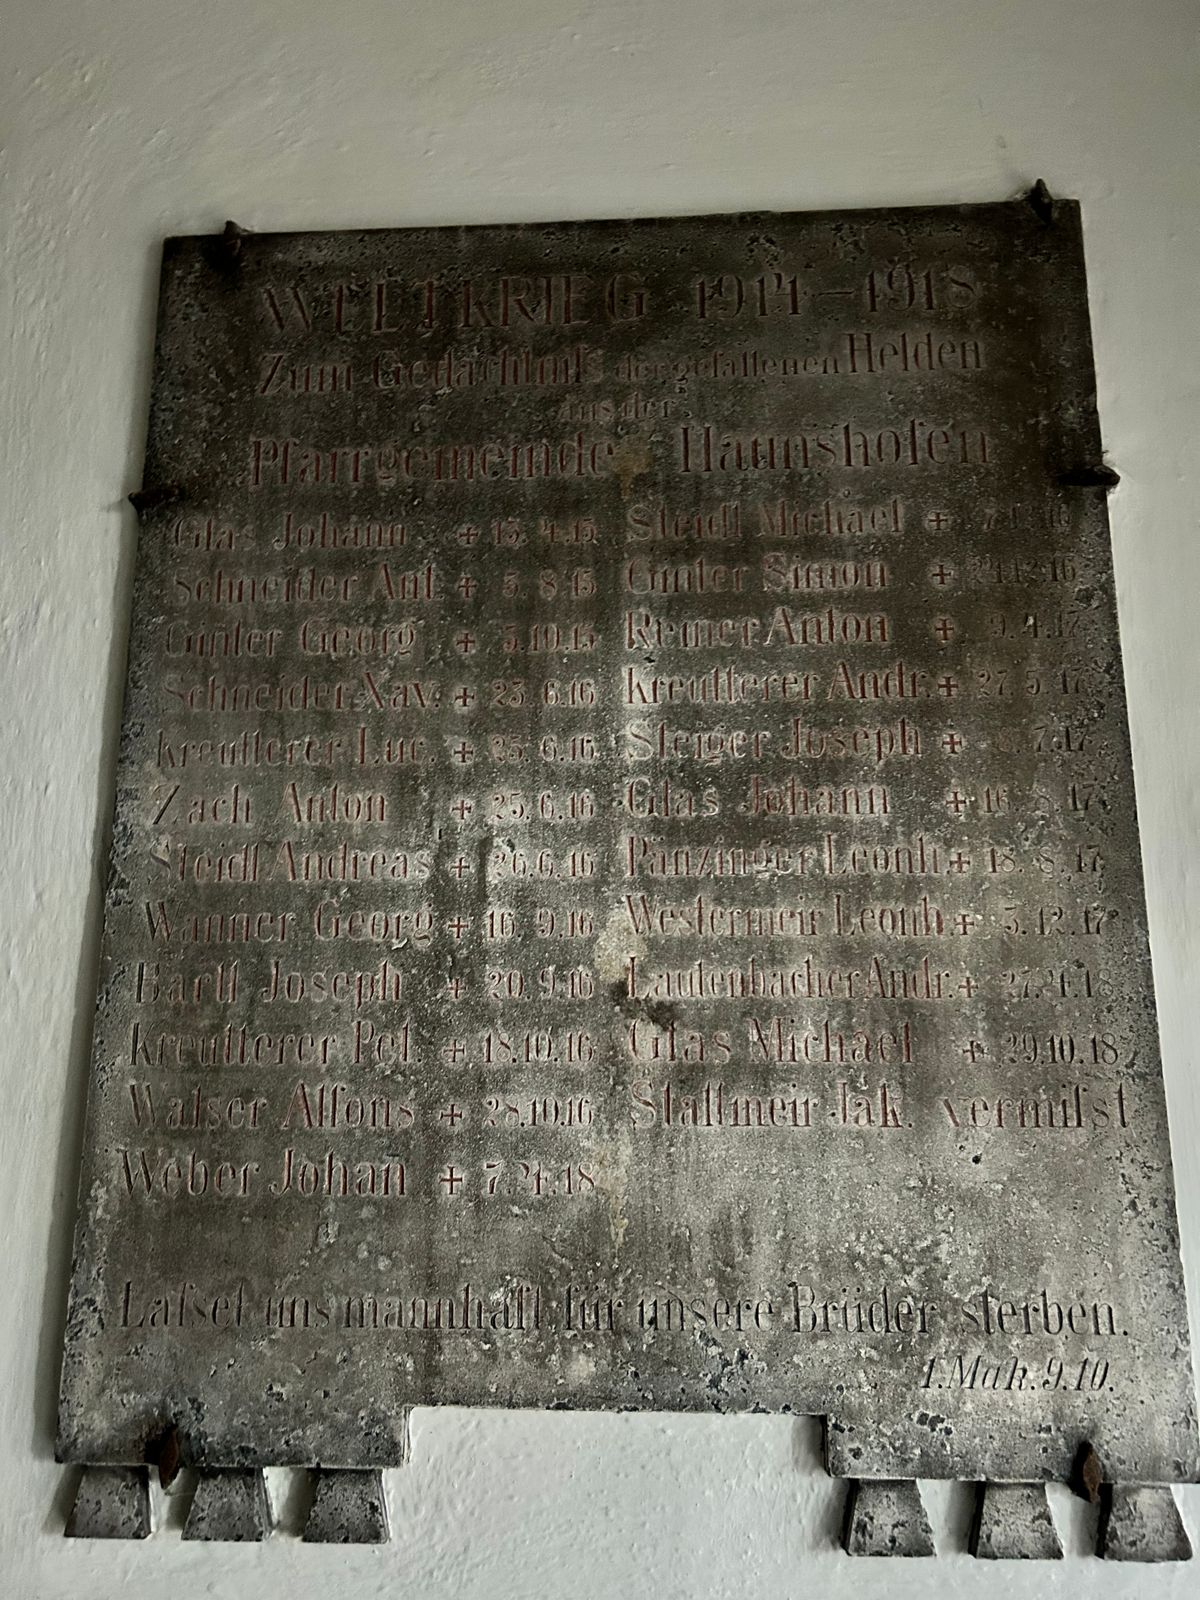 WELTKRIEG 1914–1918
Zum Gedächtniß der gefallenen Helden
aus der
Pfarrgemeinde Haunshofen
Glas Johann + 13. 4.15
Schneider Ant. + 5. 8.15
Ginter Georg + 3.10.15
Schneider Xav. + 23. 6.16
Kreutterer Luc. + 25. 6.16
Zach Anton + 25. 6.16
Steidl Andreas + 26. 6.16
Wanner Georg + 16. 9.16
Bartl Joseph + 20. 9.16
Kreutterer Pet. + 18.10.16
Walser Alfons + 28.10.16
Weber Johan̄ +
Steidl Michael +
Ginter Simon + 24.12.16
Reiner Anton + 9. 4.17
Kreutterer Andr. + 27. 5.17
Steiger Joseph + 7.17
Glas Johann + 16. 8.17
Panzinger Leonh. + 18. 8.17
Westermeir Leonh. + 3.12.17
Lautenbacher Andr. +
Glas Michael + 29.10.18
Stallmeir Jak. vermifst
Lafset uns mannhaft für unsere Brüder sterben.
1.Mak.9.10.